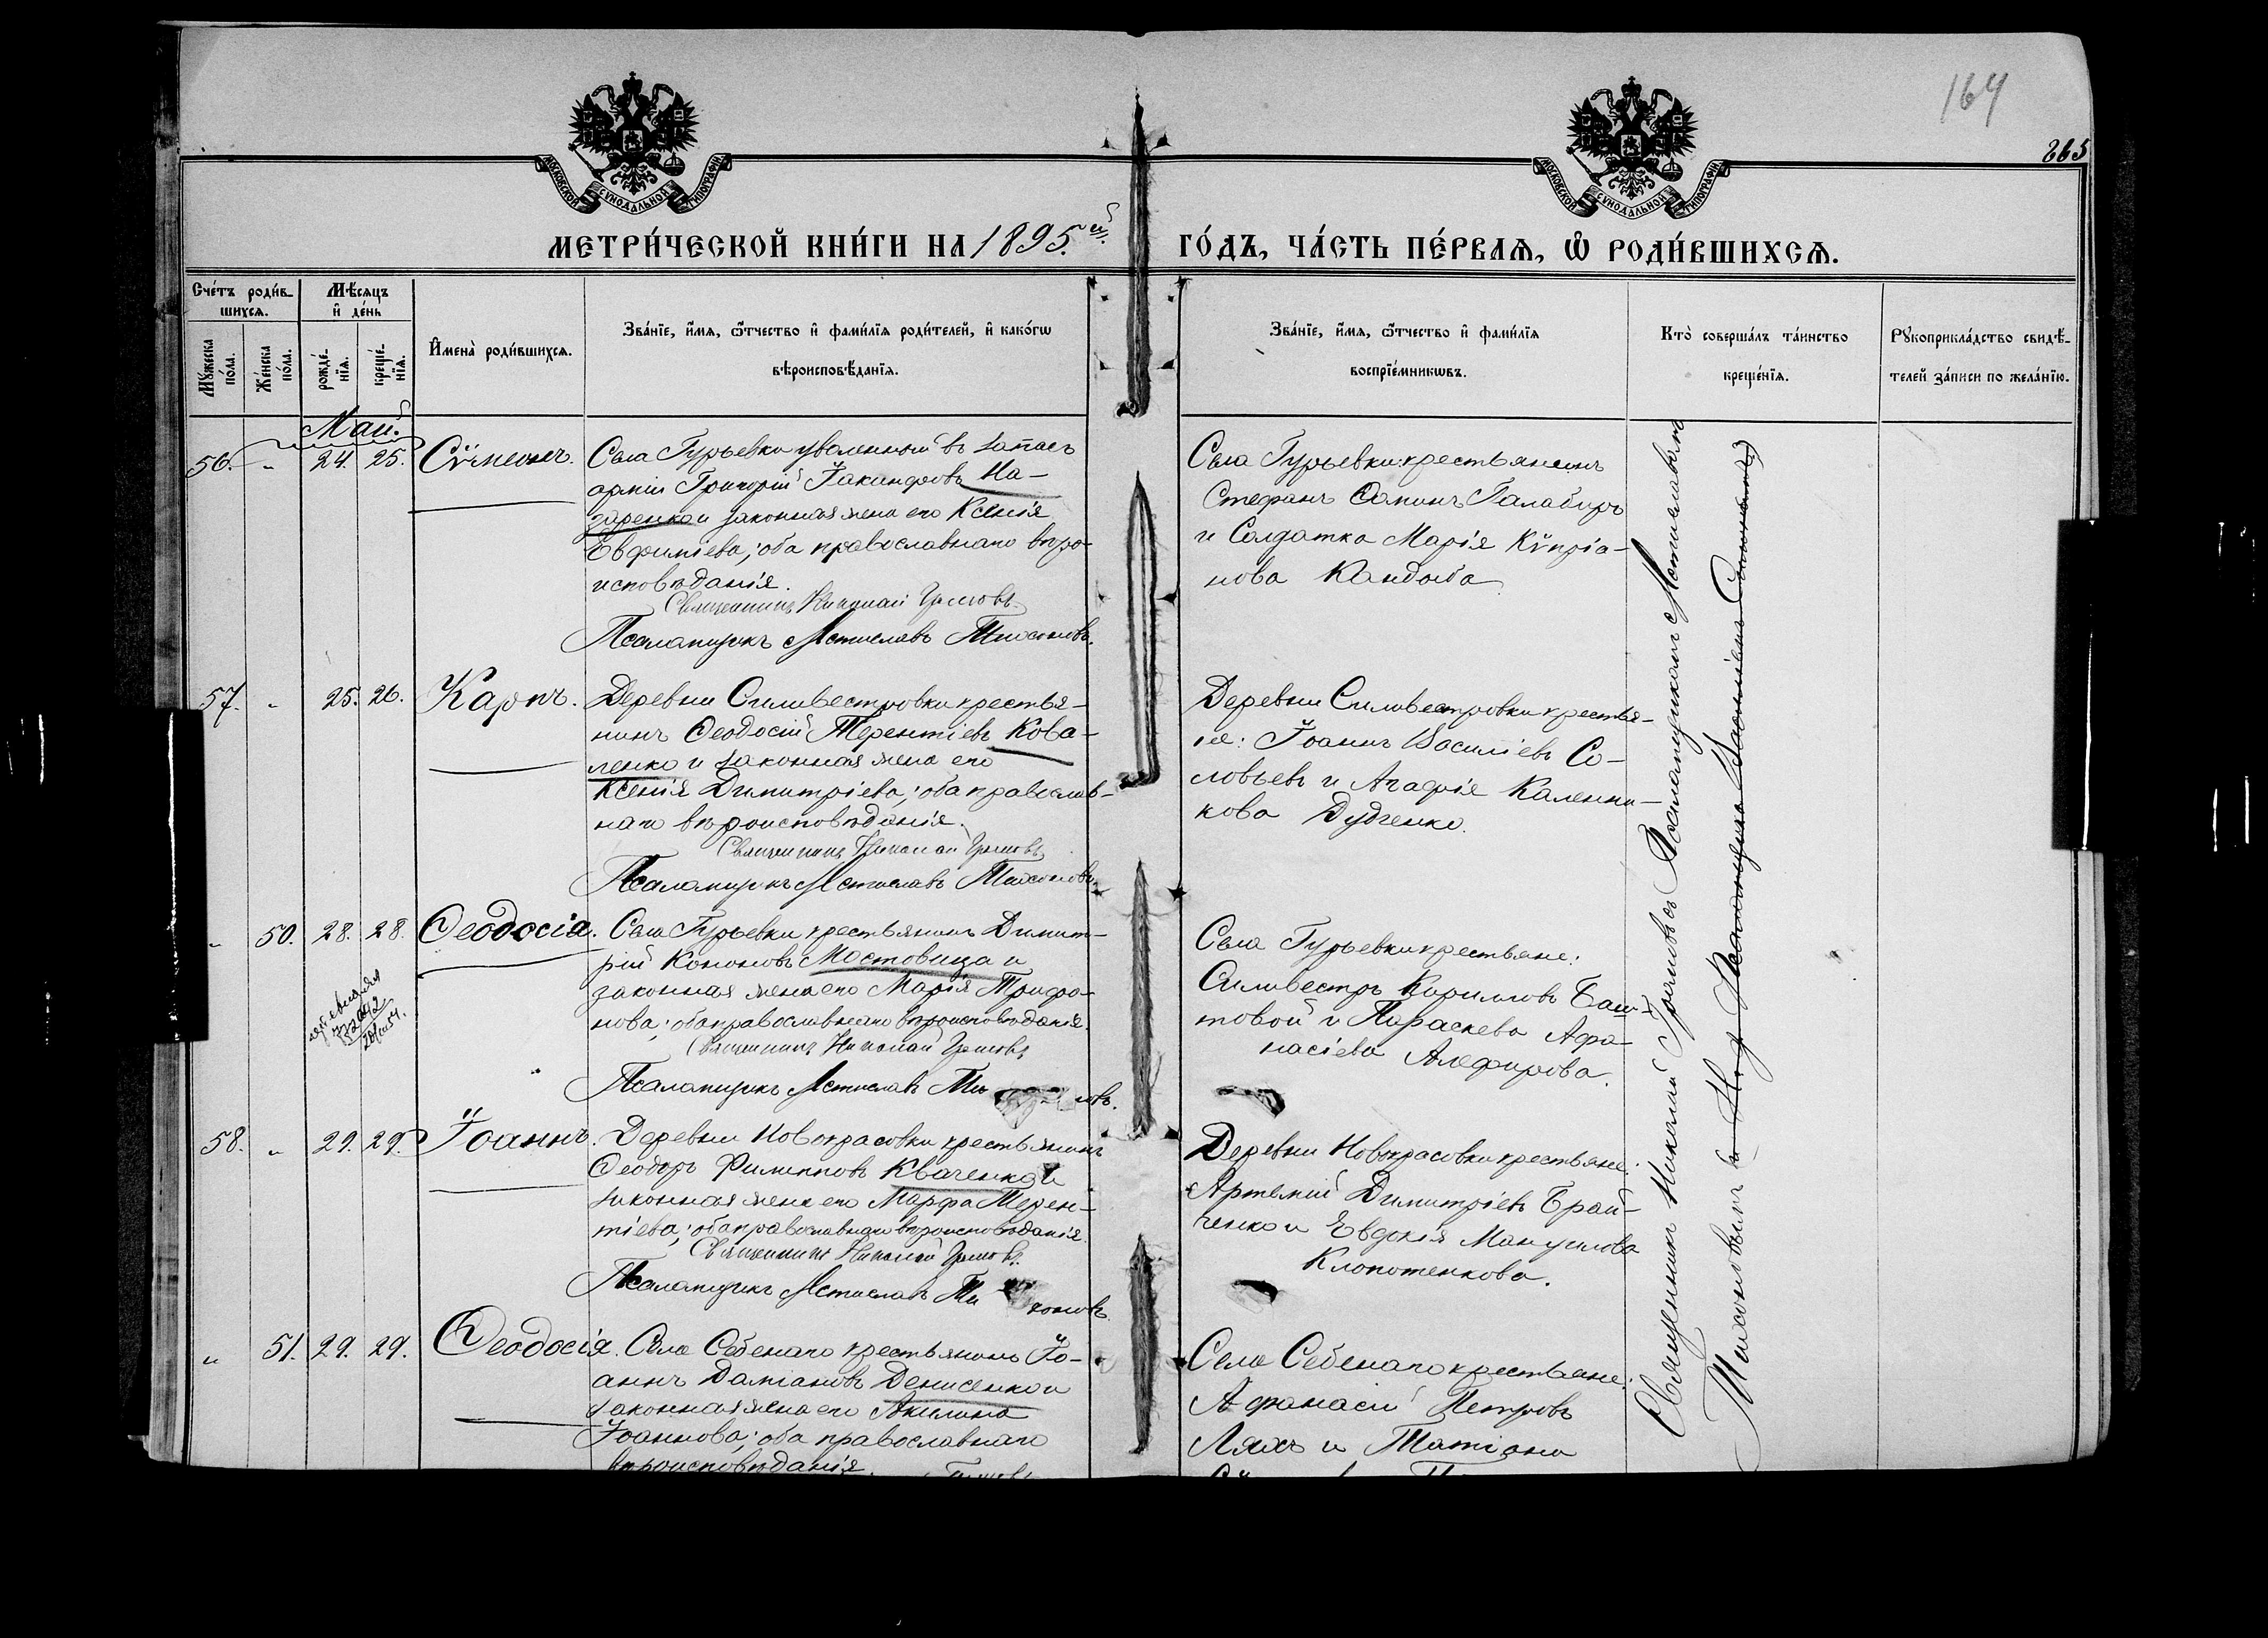 164
265
МОСКОВСКОЙ СѴНОДАЛЬНОЙ ТИПОГРАФІИ
МОСКОВСКОЙ СѴНОДАЛЬНОЙ ТИПОГРАФІИ
МЕТРИ́ЧЕСКОЙ КНИ́ГИ НА 1895.ый ГО́ДЪ, ЧА́СТЬ ПЕ́РВАѦ, Ѡ҆ РОДИ́ВШИХСѦ.
Сче́тъ роди́в-
шихсѧ.
Мѣ́сѧцъ
и҆ де́нь
Мꙋ́жеска
по́ла.
Же́нска
по́ла.
рожде́-
нїѧ.
креще́-
нїѧ.
И҆мена̀ роди́вшихсѧ.
Зва́нїе, и҆́мѧ, ѻ҆́тчество и҆ фами́лїѧ роди́телей, и҆ како́гѡ
вѣроисповѣ́данїѧ.
Зва́нїе, и҆́мѧ, ѻ҆́тчество и҆ фами́лїѧ
воспрїе́мникѡвъ.
Кто̀ соверша́лъ та́инство
креще́нїѧ.
Рꙋкоприкла́дство свидѣ́-
телей за́писи по жела́нїю.
Май.
56. „ 24. 25. Сѵмеонъ.
Села Гурьевки уволенный въ запасъ
арміи Григорій Іакинфовъ На-
заренко и законная жена его Ксенія
Евфиміева; оба православнаго вѣро-
исповѣданія.
Священникъ Николай Грязновъ
Псаломщикъ Мстиславъ
Села Гурьевки крестьянинъ
Стефанъ Ѳоминъ Палабиръ
и Солдатка Марія Кѵпріа-
нова Кандыба
57. „ 25. 26. Карпъ.
Деревни Сильвестровки крестья-
нинъ Ѳеодосій Терентіевъ Кова-
ленко и законная жена его
Ксенія Димитріева; оба православ-
наго вѣроисповѣданія.
Священникъ Николай Грязновъ
Псаломщикъ Мстиславъ
Деревни Сильвестровки крестья-
не: Іоаннъ Василіевъ Со-
ловьевъ и Агафія Каленни-
кова Дудченко.
„ 50. 28. 28. Ѳеодосія.
Села Гурьевки крестьянинъ Димит-
рій Кононовъ Мостовица и
законная жена его Марія Трифо-
нова; оба православнаго вѣроисповѣданія.
Священникъ Николай Грязновъ
Псаломщикъ Мстиславъ
Села Гурьевки крестьяне:
Сильвестръ Кирилловъ Баш-
товой и Параскева Афа-
насіева Алефирова.
58. „ 29. 29. Іоаннъ.
Деревни Новокрасовки крестьянинъ
Ѳеодоръ Филипповъ Кваченко и
законная жена его Марфа Терен-
тіева; оба православнаго вѣроисповѣданія.
Священникъ Николай Грязновъ.
Псаломщикъ Мстиславъ
Деревни Новокрасовки крестьяне:
Артемій Димитріевъ Брай-
ченко и Евдокія Мануилова
Клопотенкова.
„ 51. 29. 29. Ѳеодосія.
Села Себенаго крестьянинъ Іо-
аннъ Даміановъ Денисенко и
законная жена его Акилина
Іоаннова; оба православнаго
вѣроисповѣданія.
Села Себенаго крестьяне:
Афанасій Петровъ
Ляхъ и Татіана
Священникъ Николай Грязновъ съ Псаломщикомъ Мстиславомъ